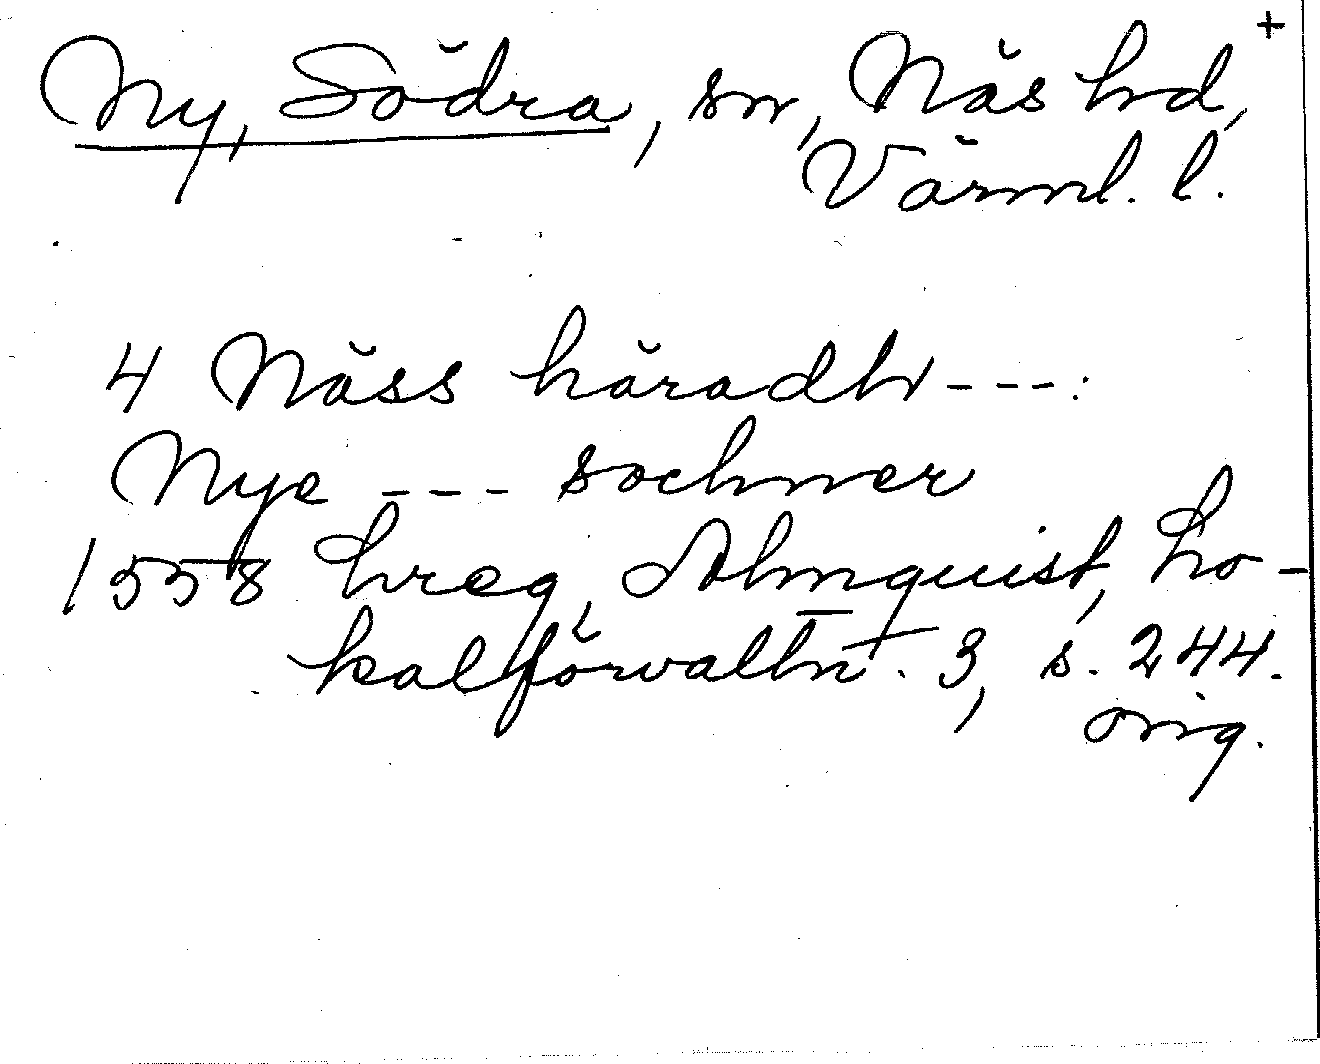 Ny, Södra, sn, Näs hd, +
Värml. l.
4 Näss häradh ---:
Nye --- sochner
1558 hreg, Almquist, Lo-
kalförvaltn. 3, s. 244.
orig.